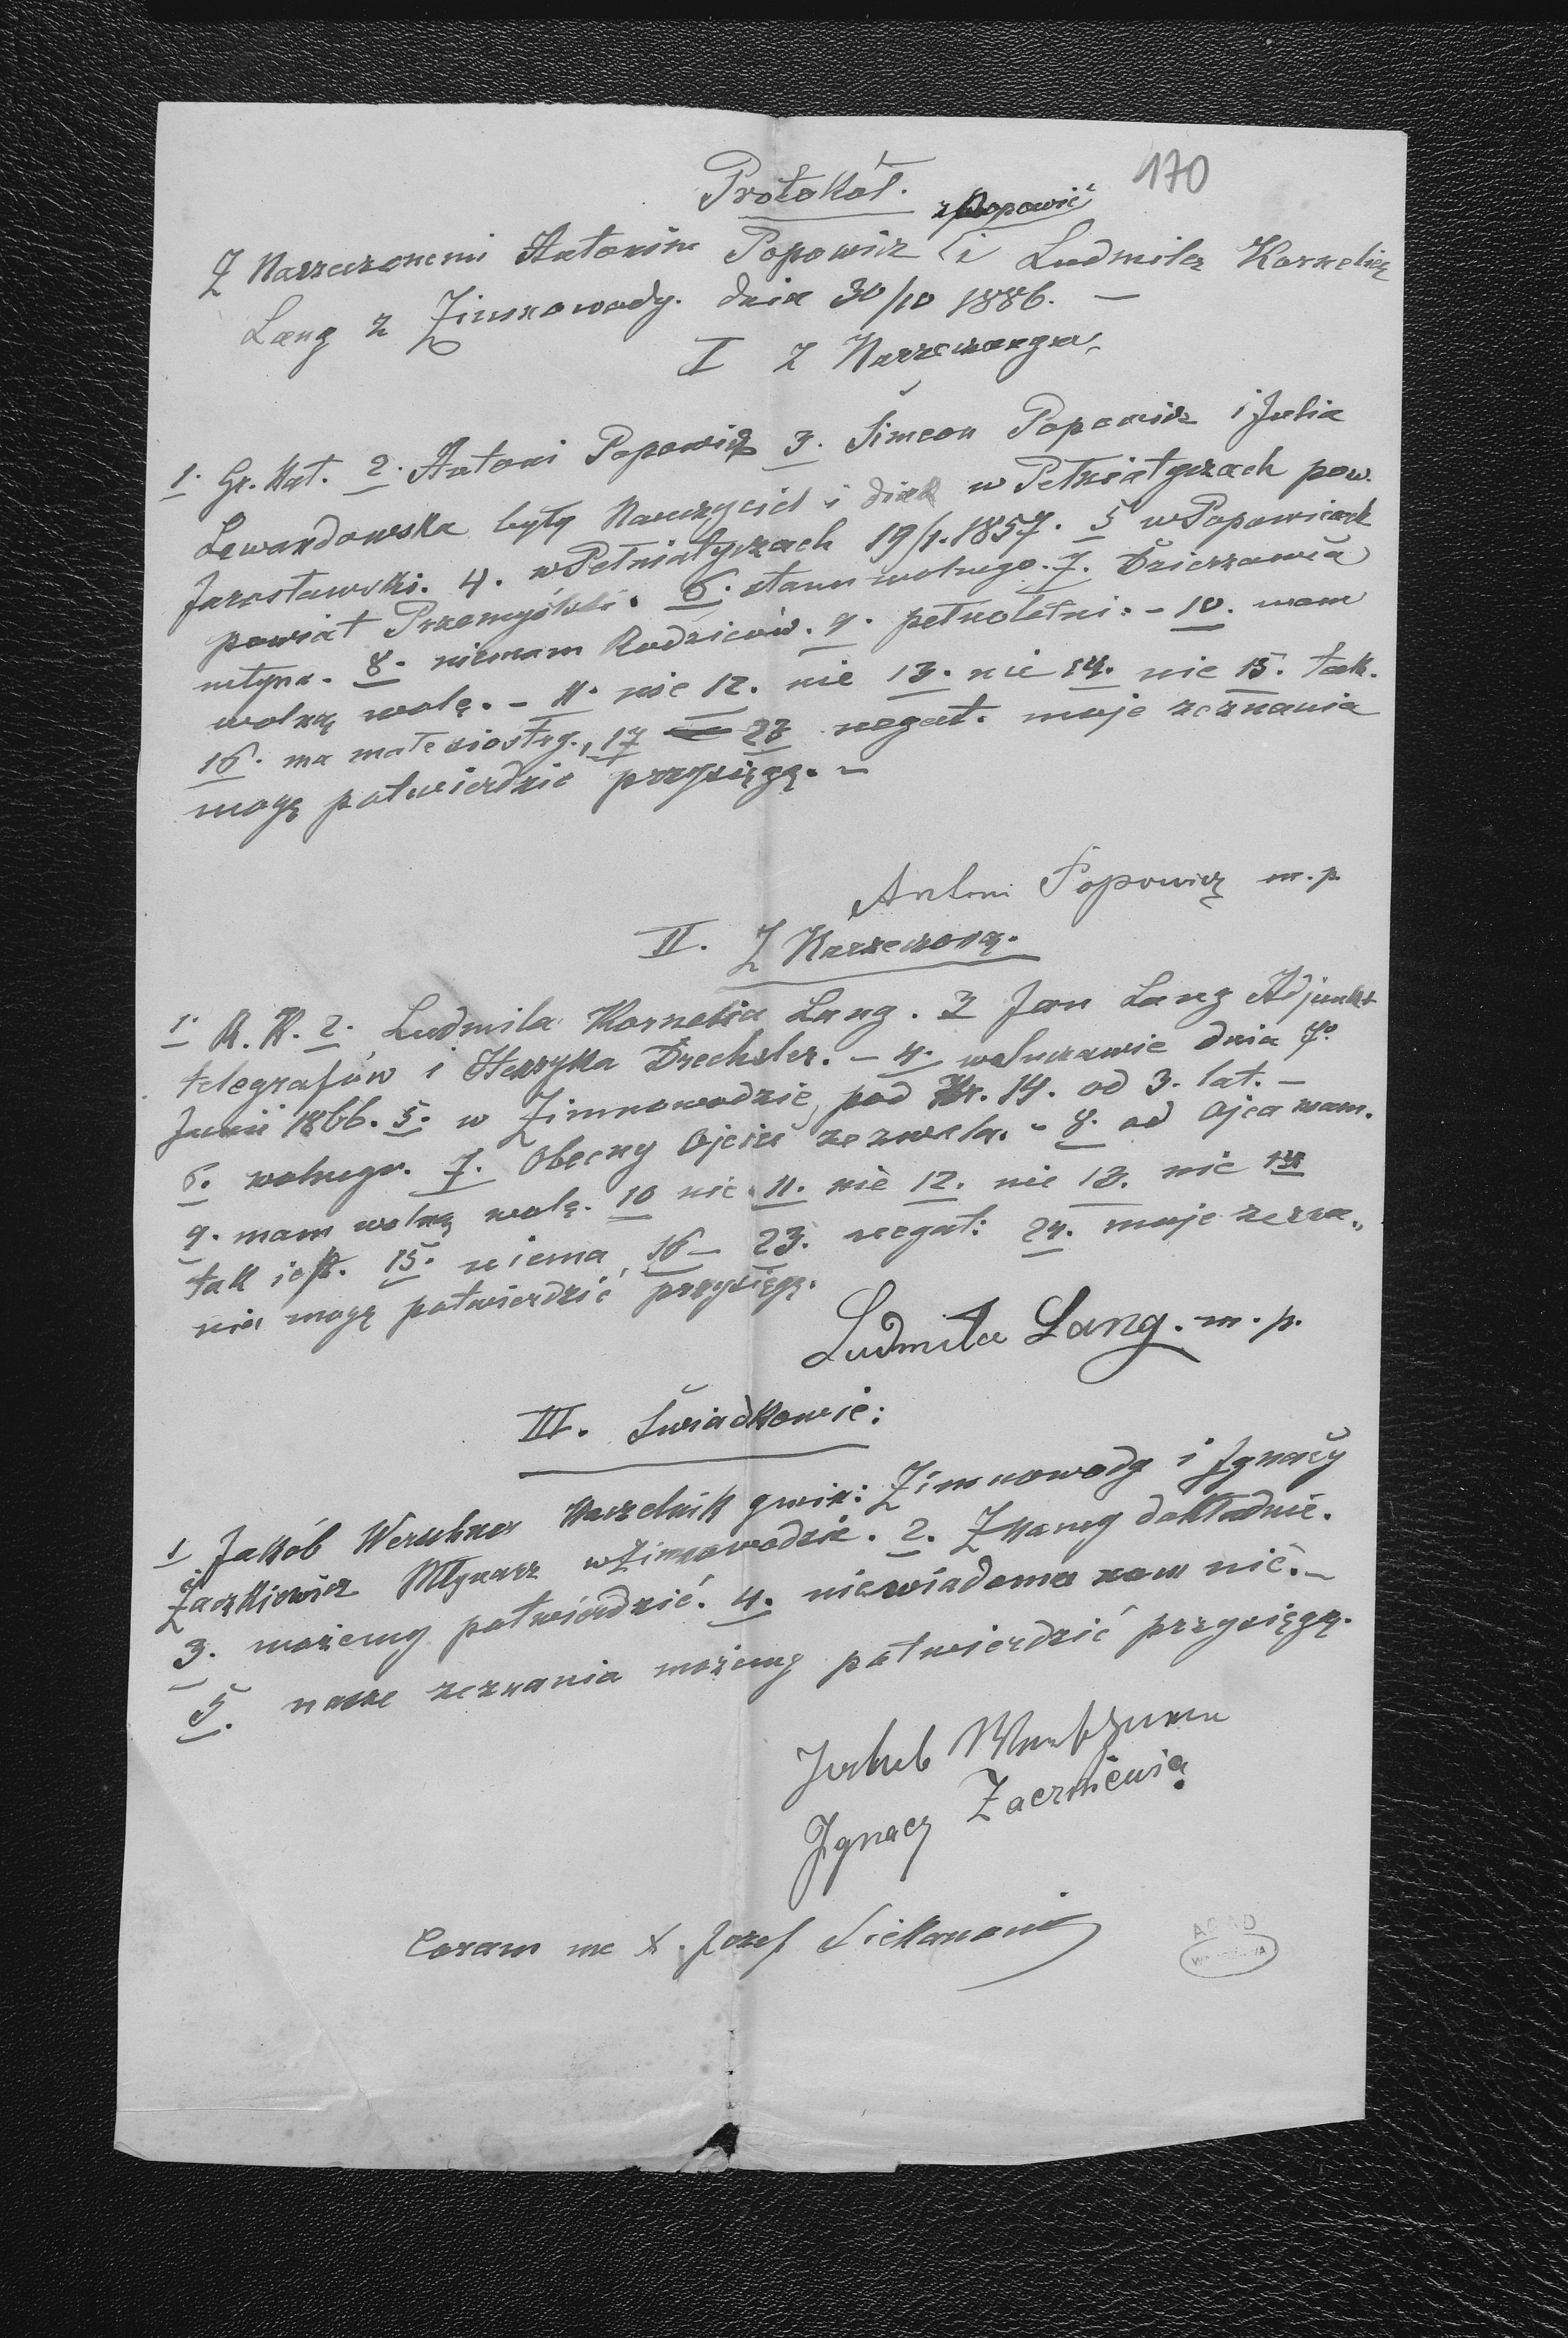 170
Protokół.
z Popowić
Z Narzeczonemi Antonim Popowicz i Ludmilą Kornelią
Lang z Zimnowody. dnia 30/10 1886. —
I Z Narzeczonym
1. Gr. Kat. 2. Antoni Popowicz 3. Simeon Popowicz i Julia
Lewandowska były Nauczyciel i diak w Pełniatyczach pow.
Jarosławski. 4. w Pełniatyczach 19/1. 1857. 5 w Popowicach
powiat Przemyślski. 6. stanu wolnego. 7. Dzierzawca
młyna. 8. niemam Rodziców. 9. pełnoletni. - 10. mam
wolną wolę. - 11. nie 12. nie 13. nie 14. nie 15. tak.
16. ma małe siostry., 17 — 23 negat. moje zeznania
mogę potwierdzić przysięgą. -
Antoni Popowicz m. p.
II. Z Narzeczoną.
1. R. K. 2. Ludmila Kornelia Lang. 3 Jan Lang Adjunkt
telegrafów i Henryka Drechsler. - 4. dnia 7º
Junii 1866. 5. w Zimnowodzie pod Nr. 14. od 3. lat. -
6. wolnego. 7. Obecny Ojciec zezwala. - 8. od Ojca mam.
9. mam wolną wolę. 10 nie 11. nie 12. nie 13. nie 14
tak jest. 15. niema, 16 - 23. negat: 24. moje zezna„
nia mogę potwierdzić przysięgą.
Ludmiła Lang. m. p.
III. Świadkowie:
1 Jakób Naczelnik gmin: Zimnowody i Ignacy
Żaczkiewicz Młynarz w Zimnowodzie. 2. Znamy dokładnie.
3. możemy potwierdzić. 4. niewiadomo nam nic. -
5. nasze zeznania możemy potwierdzić przysięgą.
Jakub
Ignacy
Coram me X. Jozef
AGAD
WARSZAWA